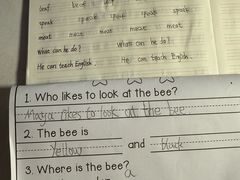 leaf
speak speak speak speak
meat meat meat meat meat
What can he do? What can he do?
He can teach English. He can teach English.
1. Who likes to look at the bee?
Maya likes to look at the bee
2. The bee is
Yellow and black
3. Where is the bee?